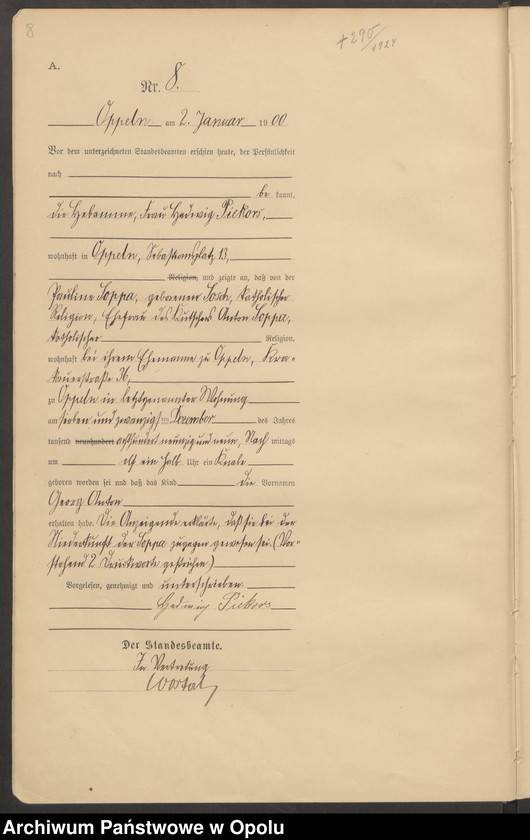 8
+295/1924
A.
Nr. 8.
Oppeln am 2. Januar 1900
Vor dem unterzeichneten Standesbeamten erschien heute, der Persönlichkeit
nach
be kannt,
die Hebamme, Frau Hedwig Pickors,
wohnhaft in Oppeln, Sebastiansplatz 13,
Religion, und zeigte an, daß von der
Pauline Soppa, geborenen katholischer
Religion, Ehefrau des Kutschers Anton Soppa,
katholischer Religion,
wohnhaft bei ihrem Ehemanne zu Oppeln, Kra-
kauerstraße 36,
zu Oppeln in letztgenannter Wohnung
am sieben und zwanzigsten Dezember des Jahres
tausend neunhundert achthundert neunzig und neun, Nach mittags
um elf ein halb Uhr ein Knabe
geboren worden sei und daß das Kind die Vornamen
Georg Anton
erhalten habe. Die Anzeigende erklärte, daß sie bei der
Niederkunft der Soppa zugegen gewesen sei. (Vor-
stehend 2 Druckworte gestrichen.)
Vorgelesen, genehmigt und unterschrieben
Hedwig Pickors
Der Standesbeamte.
In Vertretung
Archiwum Państwowe w Opolu